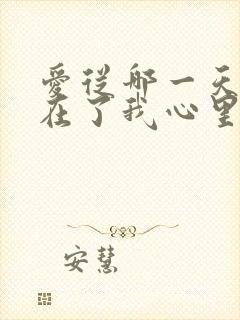 愛從那一天
在了我心里
安慧